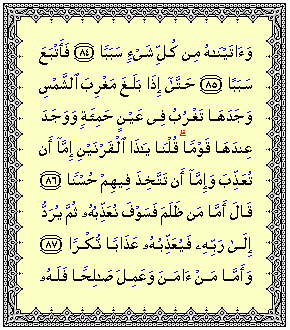 وَءَاتَيْنَٰهُ مِن كُلِّ شَىْءٍ سَبَبًا ﴿٨٤﴾ فَأَتْبَعَ
سَبَبًا ﴿٨٥﴾ حَتَّىٰٓ إِذَا بَلَغَ مَغْرِبَ ٱلشَّمْسِ
وَجَدَهَا تَغْرُبُ فِى عَيْنٍ حَمِئَةٍ وَوَجَدَ
عِندَهَا قَوْمًا ۗ قُلْنَا يَٰذَا ٱلْقَرْنَيْنِ إِمَّآ أَن
تُعَذِّبَ وَإِمَّآ أَن تَتَّخِذَ فِيهِمْ حُسْنًا ﴿٨٦﴾
قَالَ أَمَّا مَن ظَلَمَ فَسَوْفَ نُعَذِّبُهُۥ ثُمَّ يُرَدُّ
إِلَىٰ رَبِّهِۦ فَيُعَذِّبُهُۥ عَذَابًا نُّكْرًا ﴿٨٧﴾
وَأَمَّا مَنْ ءَامَنَ وَعَمِلَ صَٰلِحًا فَلَهُۥ